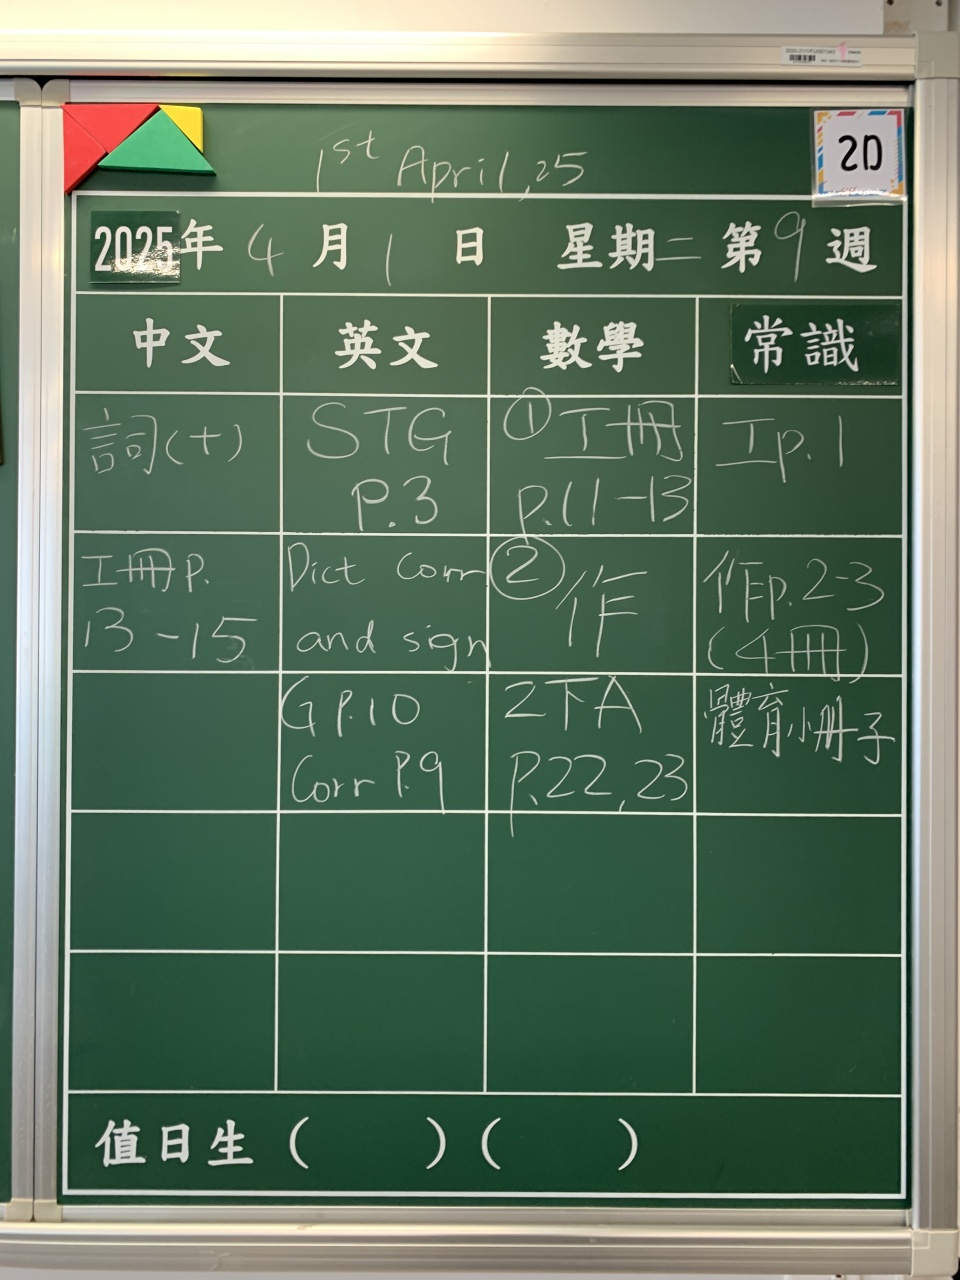 1st April, 25
2D
2025年 4 月 1 日 星期二 第 9 週
中文 英文 數學 常識
詞(十)
STG
P.3
① 工冊
p.11-13
工p.1
工冊 p.
13-15
Dict Corr
and sign
② 作
作p.2-3
(4冊)
G P.10
Corr P.9
2下A
P.22,23
體育小冊子
值日生 ( ) ( )